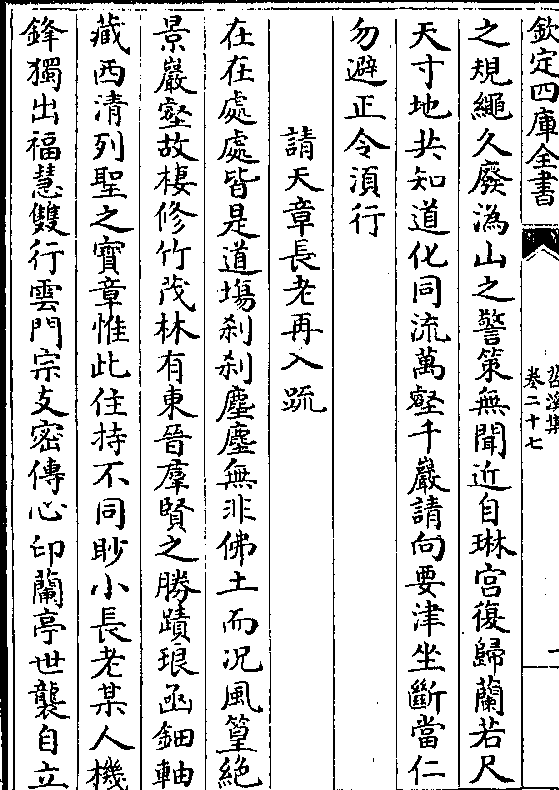 欽定四庫全書
卷二十七
之規繩久廢潙山之警策無聞近自琳宮復歸蘭若尺
天寸地共知道化同流萬壑千巖請向要津坐斷當仁
勿避正令須行
請天章長老再入疏
在在處處皆是道場刹刹塵塵無非佛土而况風篁絶
景巖壑故棲修竹茂林有東晉羣賢之勝蹟琅函鈿軸
藏西清列聖之寳章惟此住持不同眇小長老某人機
鋒獨出福慧雙行雲門宗支密傳心印蘭亭世襲自立